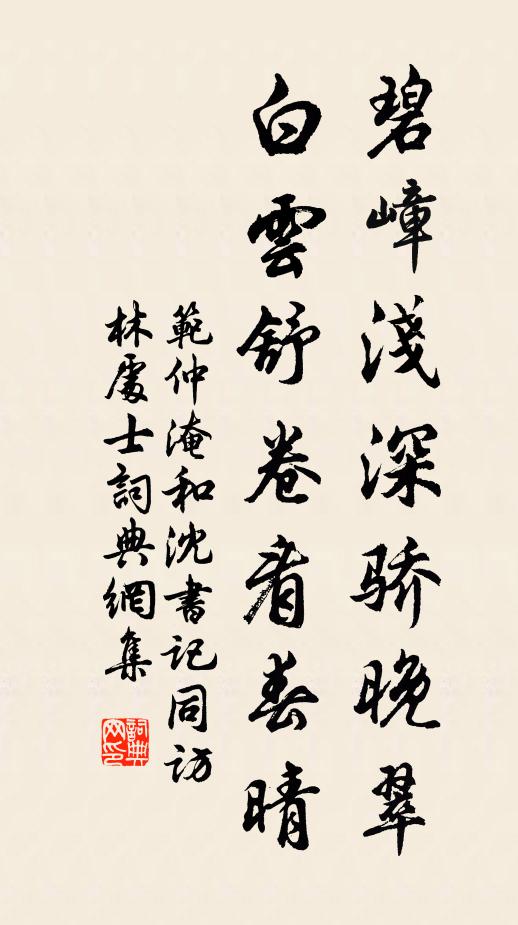 碧嶂淺深骄晚翠
白雲舒卷看春晴
範仲淹和沈書記同訪
林處士詞典網集
詞典網印